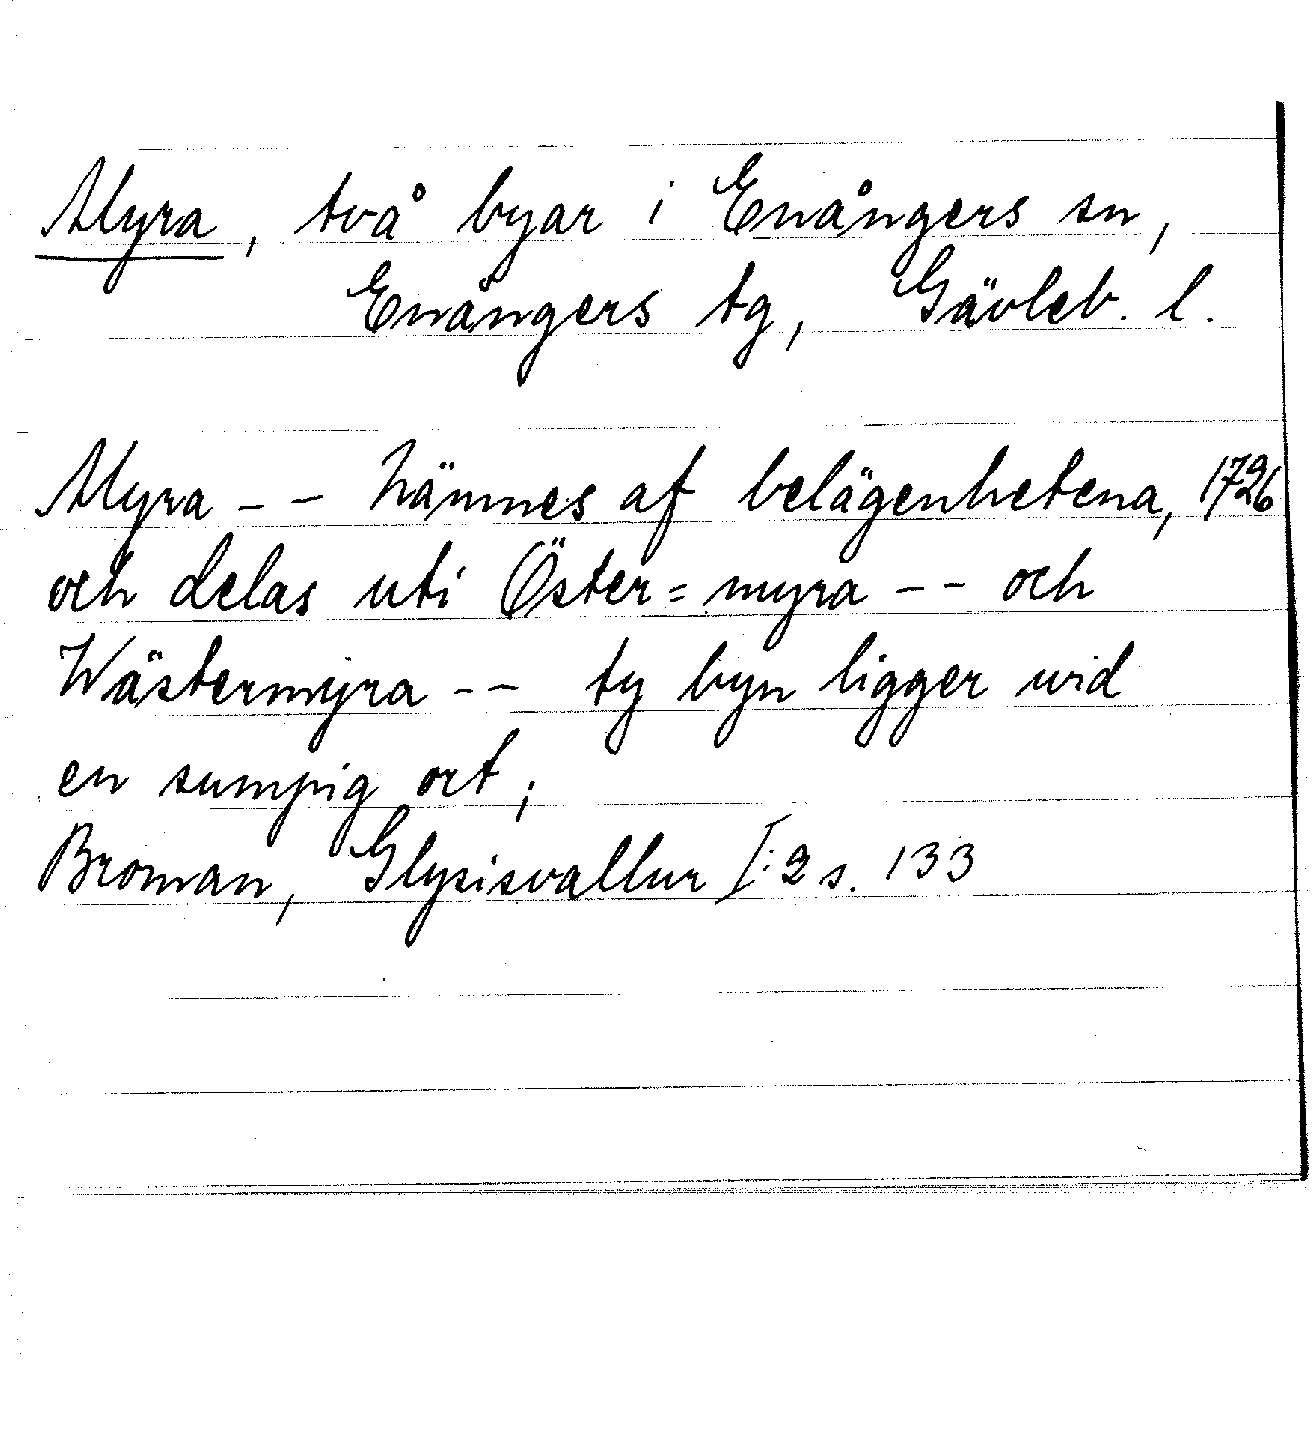 Myra, två byar i Enångers sn,
Enångers tg, Gävleb. l.
Myra -- nämnes af belägenhetena, 1726
och delas uti Öster=myra -- och
Wästermyra -- ty byn ligger wid
en sumpig ort;
Broman, Glysisvallur I:2 s. 133